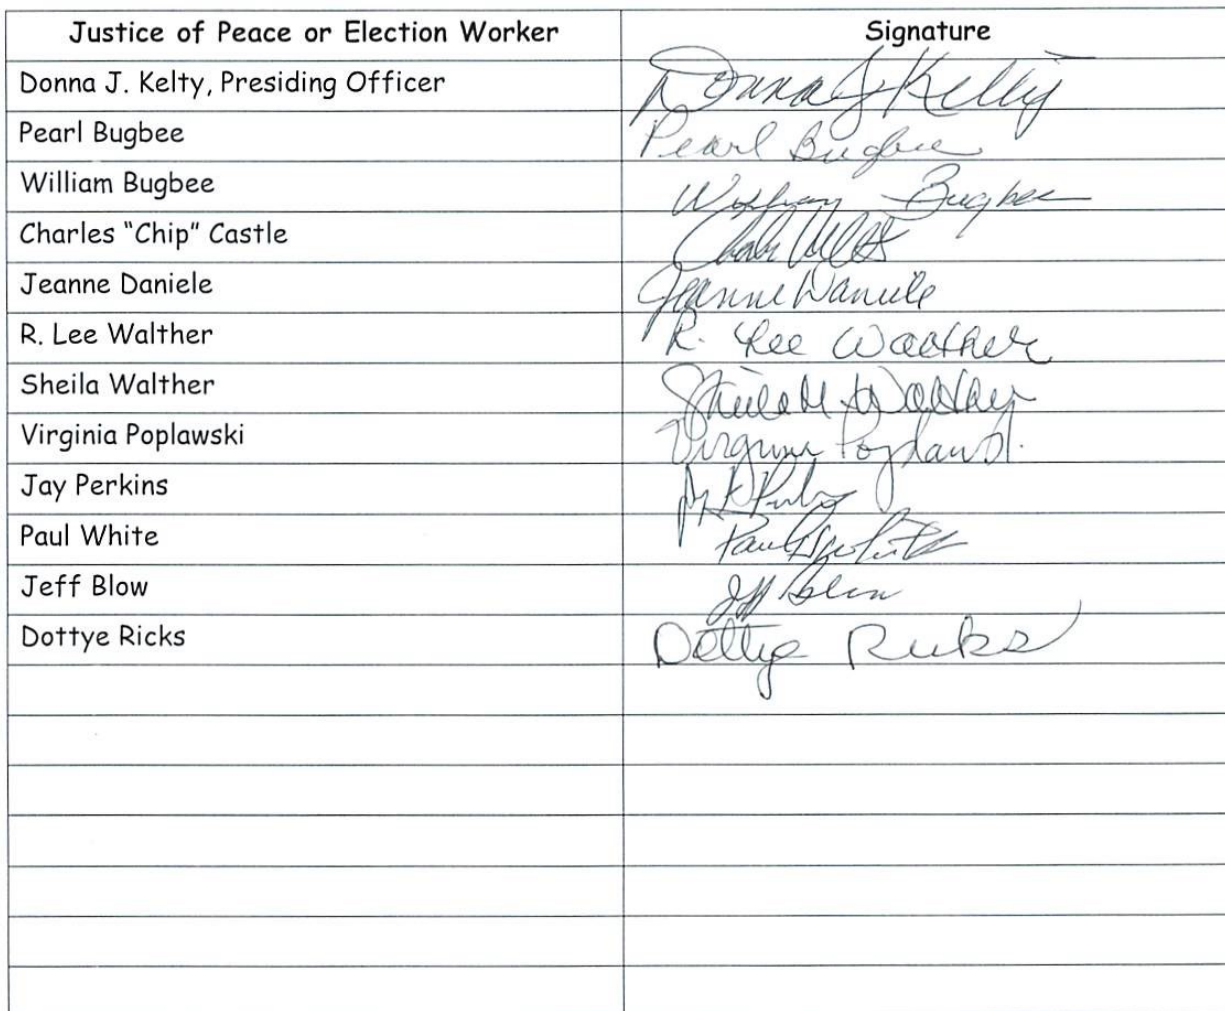 Justice of Peace or Election Worker Signature
Donna J. Kelty, Presiding Officer Donna J Kelty
Pearl Bugbee Pearl Bugbee
William Bugbee William Bugbee
Charles "Chip" Castle
Jeanne Daniele Jeanne Daniele
R. Lee Walther R. Lee Walther
Sheila Walther Sheila M Walther
Virginia Poplawski Virginia Poplawski
Jay Perkins
Paul White Paul White
Jeff Blow Jeff Blow
Dottye Ricks Dottye Ricks